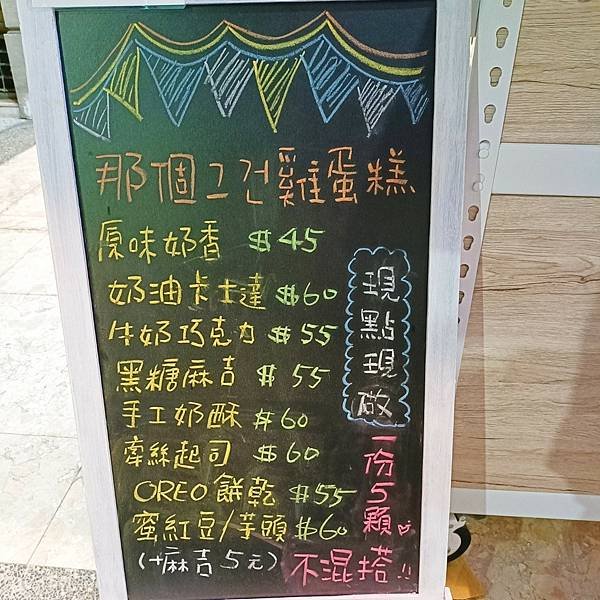 那個ㄐ一ㄢ雞蛋糕
原味奶香 $45
奶油卡士達 $60
牛奶巧克力 $55
黑糖麻吉 $55
手工奶酥 $60
牽絲起司 $60
OREO餅乾 $55
蜜紅豆/芋頭 $60
(+麻吉5元)
現點現做
一份5顆
不混搭!!